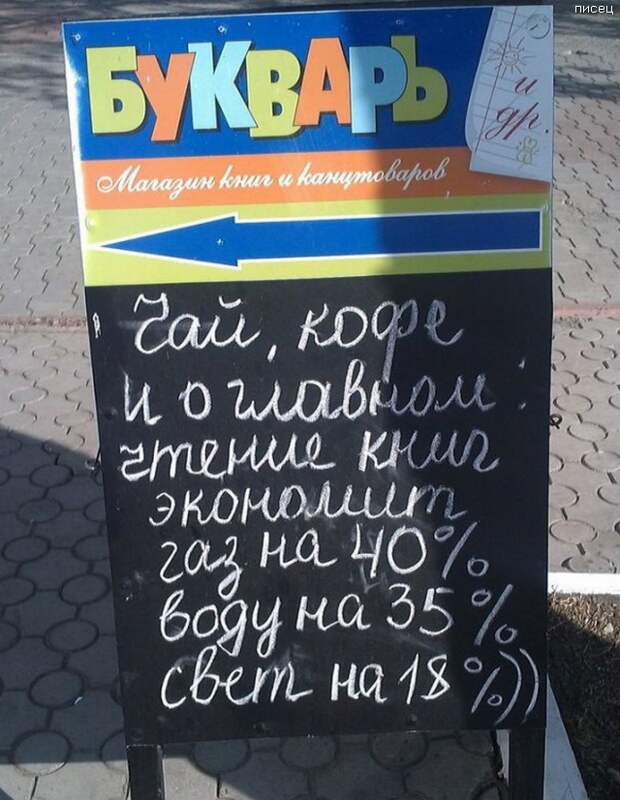 писец
БУКВАРЬ
и
др.
Магазин книг и канцтоваров
Чай, кофе
и о главном:
чтение книг
экономит
газ на 40%
воду на 35%
свет на 18%))